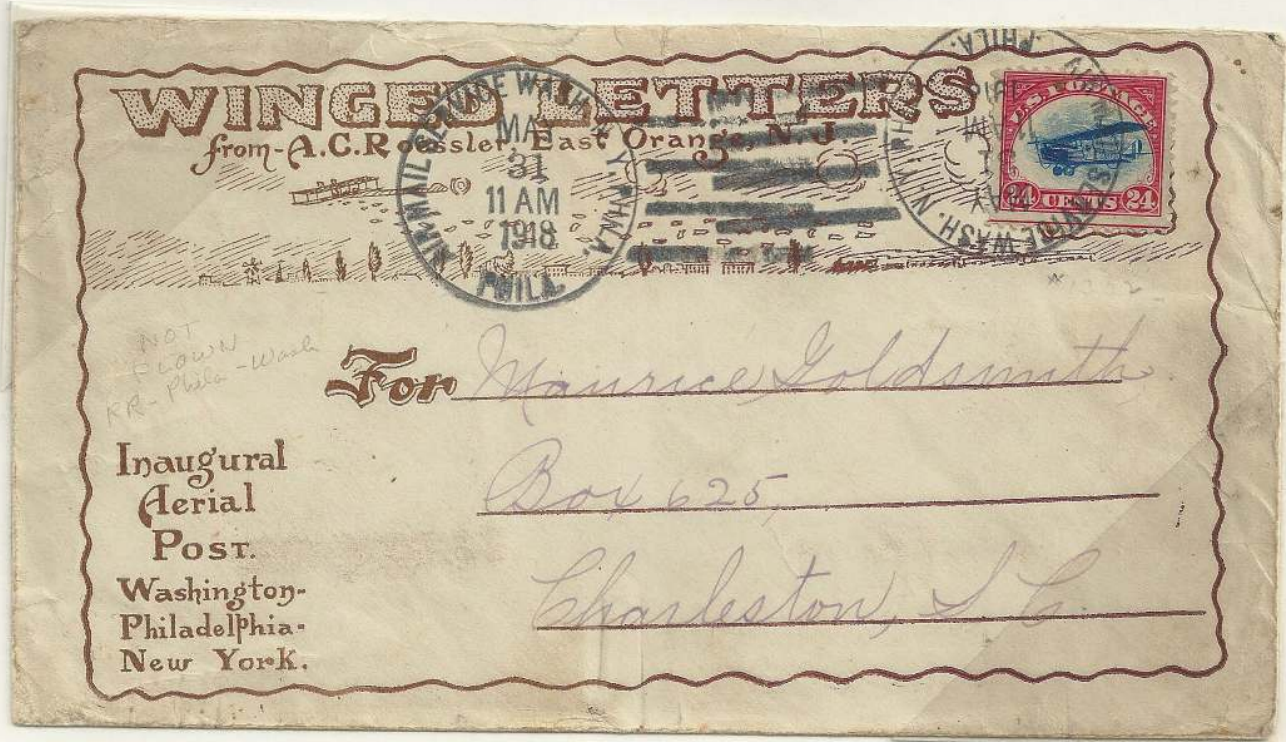 WINGED LETTERS
from-A.C.Roessler, East Orange, N.J.
AIR MAIL SERVICE WASH. N.Y. PHILA.
MAY
31
11 AM
1918
PHILA.
AIR MAIL SERVICE WASH. N.Y. PHILA.
MAY
31
11 AM
1918
PHILA.
U.S. POSTAGE
24 CENTS 24
NOT
FLOWN
RR - Phila - Wash
For Maurice Goldsmith,
Box 625,
Charleston, S C.
Inaugural
Aerial
Post.
Washington-
Philadelphia-
New York.